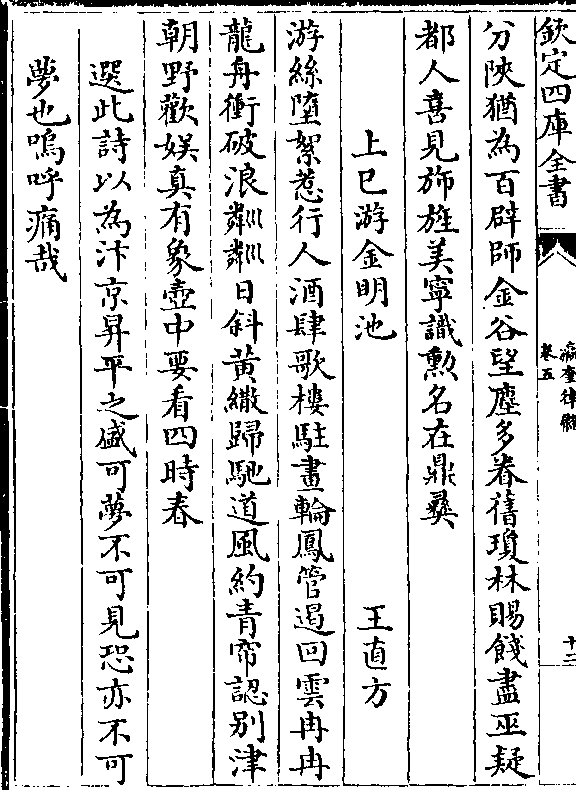 欽定四庫全書
瀛奎律髓
卷五
十三
分陜猶為百辟師金谷望塵多眷舊瓊林賜餞盡巫疑
都人喜見旆旌美寧識勲名在鼎彝
上巳游金明池　王直方
游絲墮絮惹行人酒肆歌樓駐畫輪鳳管遏回雲冉冉
龍舟衝破浪粼粼日斜黃繖歸馳道風約青帘認别津
朝野歡娱真有象壺中要看四時春
選此詩以為汴京昇平之盛可夢不可見恐亦不可
夢也嗚呼痛哉